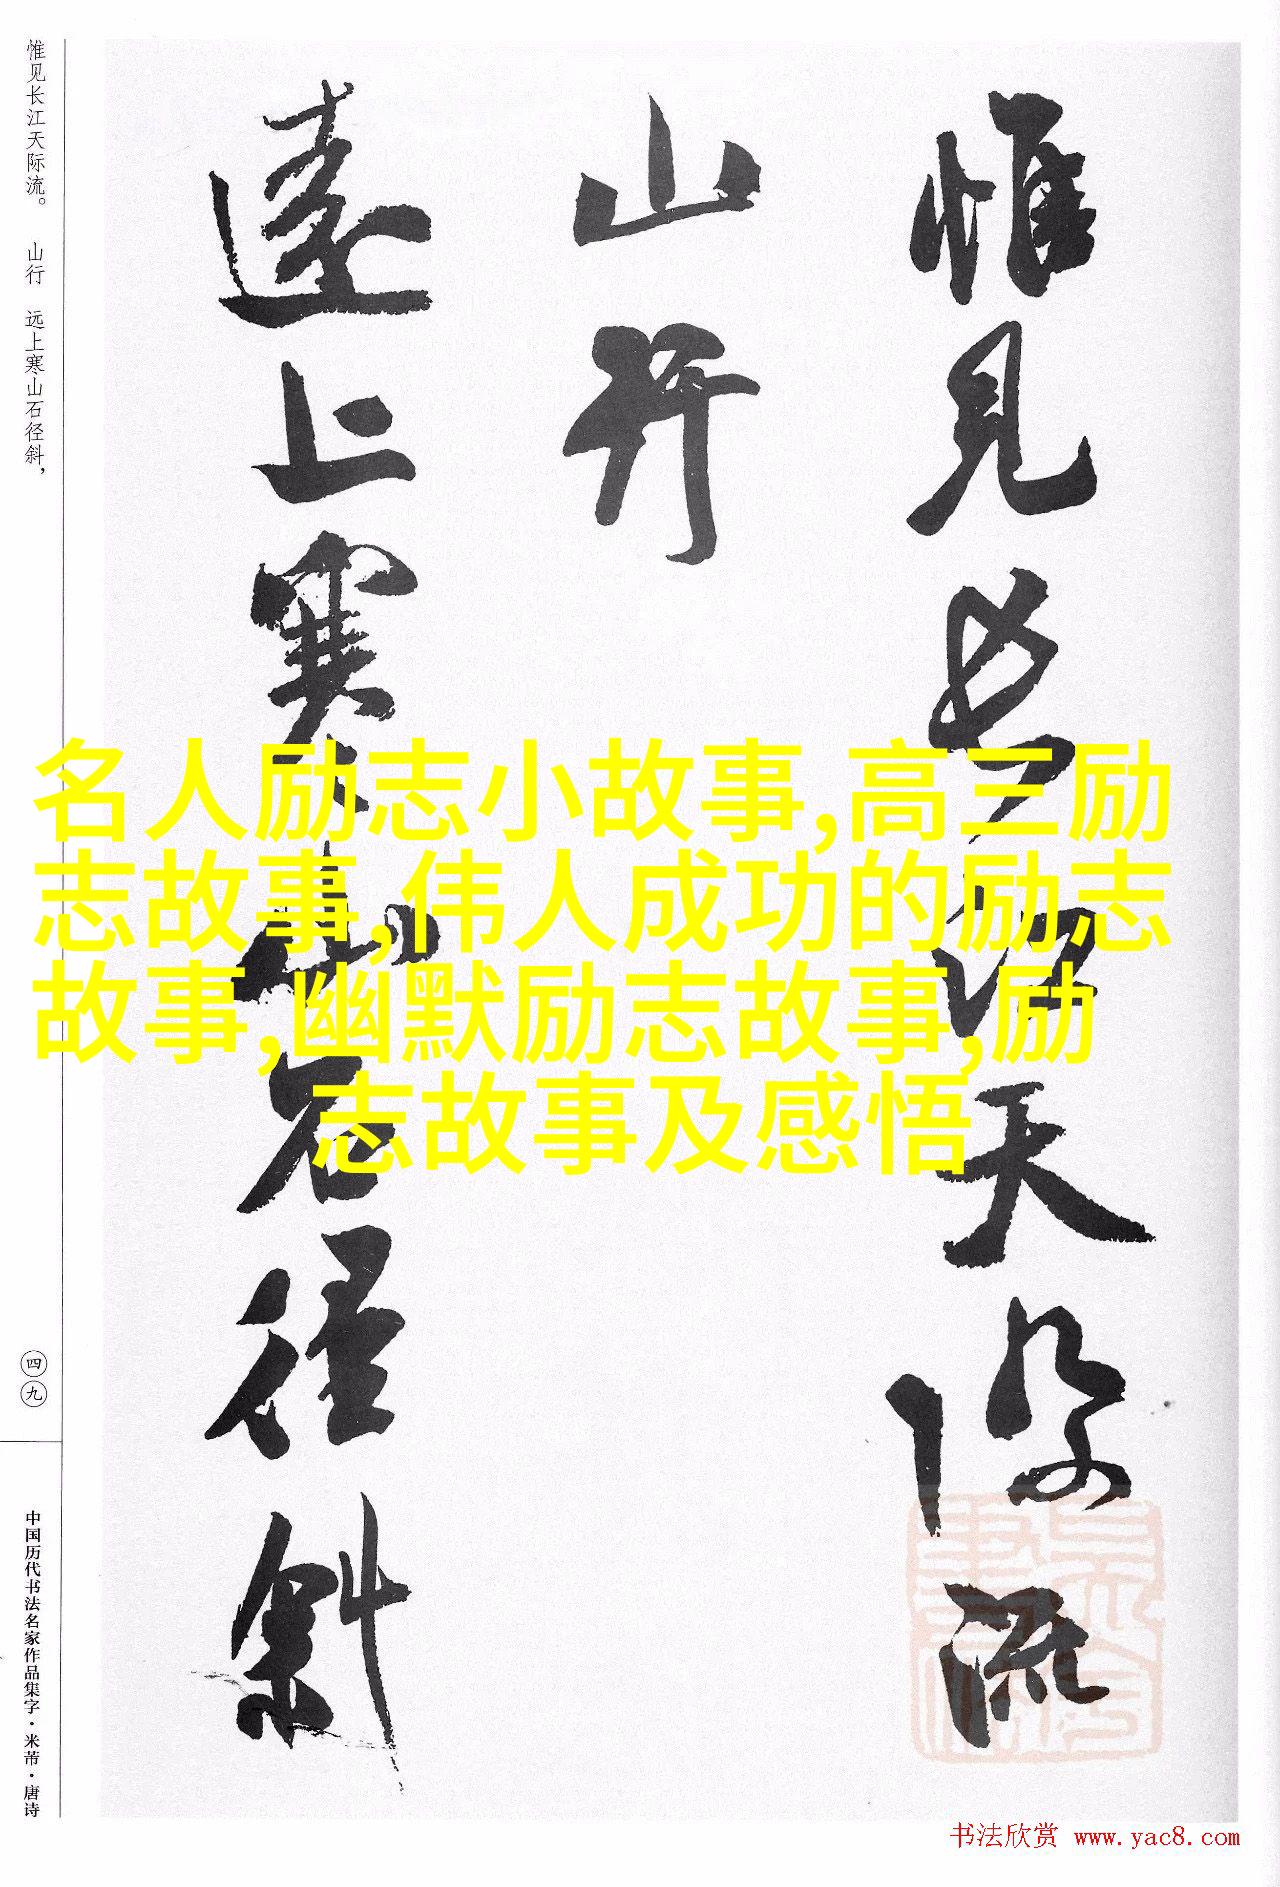 惟见长江天际流。 山行 远上寒山石径斜，
四九
中国历代书法名家作品集字·米芾·唐诗
惟見長江天際流
山行
遠上寒山石徑斜
名人励志小故事,高三励
志故事,伟人成功的励志
故事,幽默励志故事,励
志故事及感悟
书法欣赏 www.yac8.com